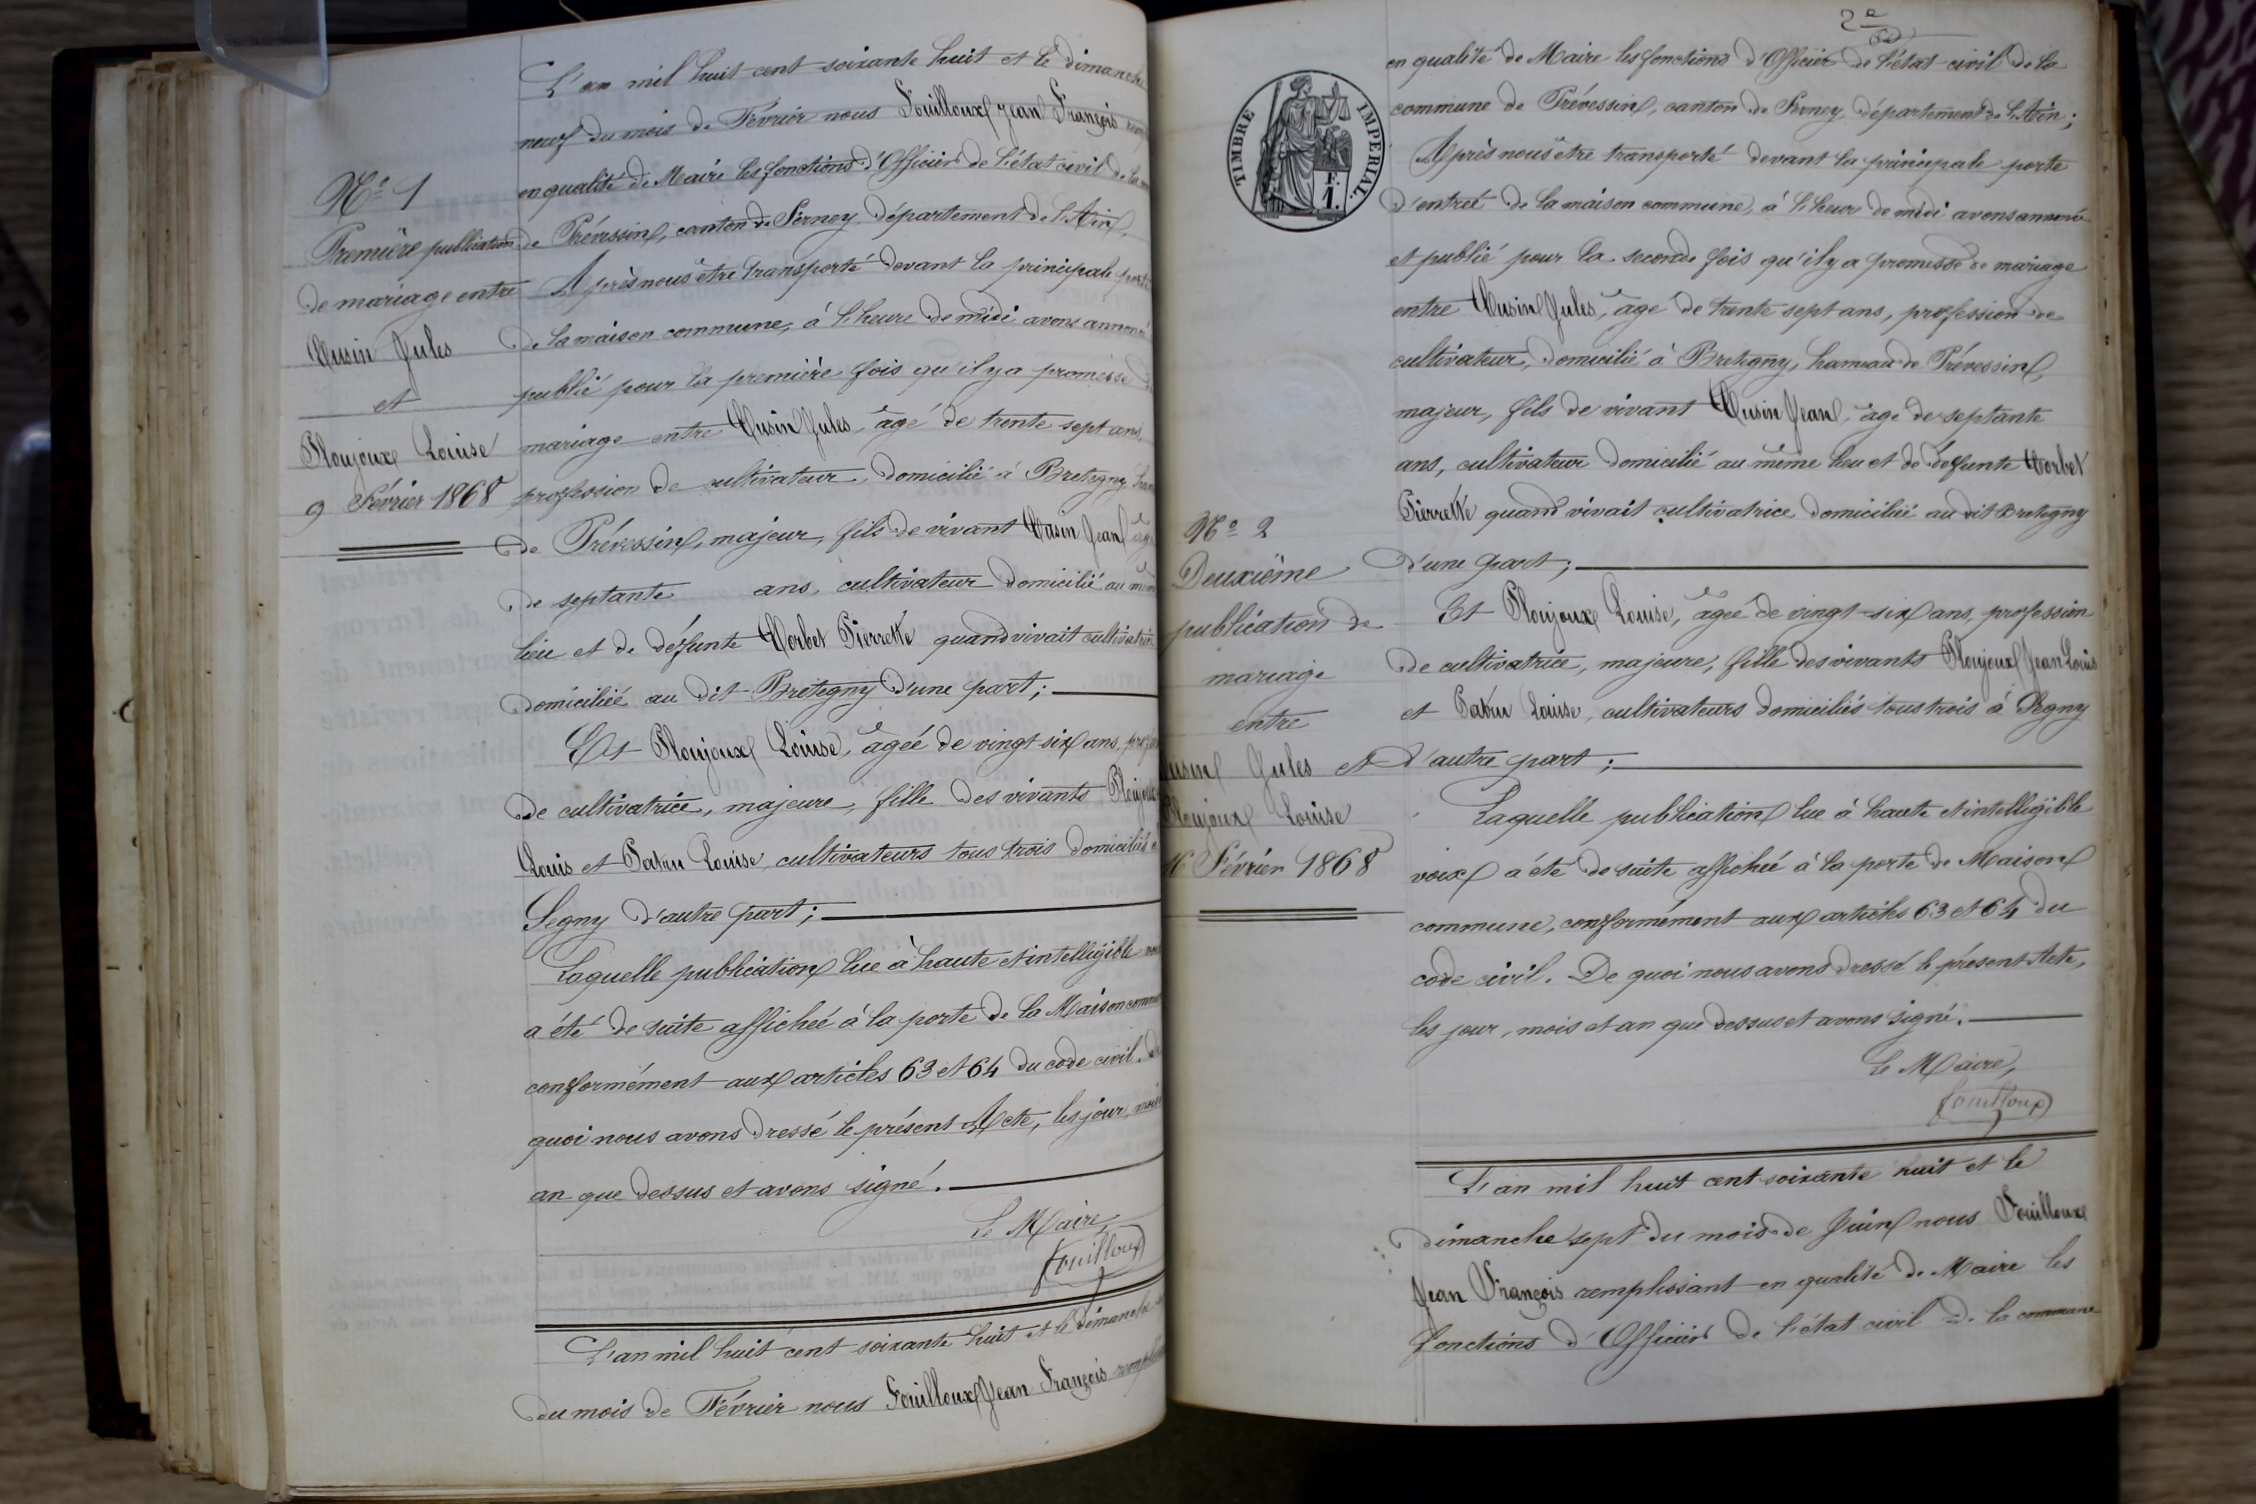 L'an mil huit cent soixante huit et le dimanche
neuf du mois de Février nous Fouilloux Jean François
en qualité de Maire les fonctions d'Officier de l'état civil de la
de Prévessin, canton de Ferney, département de l'Ain,
Après nous être transporté devant la principale porte
de la maison commune, à l'heure de midi avons annoncé
publié pour la première fois qu'il y a promesse
mariage entre Jules, âgé de trente sept ans,
profession de cultivateur, domicilié à Bretegny,
de Prévessin, majeur, fils de vivant Jean
de septante ans, cultivateur domicilié au
lieu et de défunte Pierrette quand vivait cultivatrice
domiciliée au dit Bretegny d'une part;
Et Ploujoux Louise, âgée de vingt-six ans,
de cultivatrice, majeure, fille des vivants
Louis et Louise, cultivateurs tous trois domiciliés
Segny d'autre part;
Laquelle publication lue à haute et intelligible
a été de suite affichée à la porte de la Maison
conformément aux articles 63 et 64 du code civil.
quoi nous avons dressé le présent Acte, les jour,
an que dessus et avons signé.
Le Maire,
Fouilloux
L'an mil huit cent soixante huit et le dimanche
du mois de Février nous Fouilloux Jean François
Nº 1
Première publication
de mariage entre
Jules
et
Ploujoux Louise
9 Février 1868
2e
TIMBRE IMPERIAL.
F.
1.
en qualité de Maire les fonctions d'Officier de l'état civil de la
commune de Prévessin, canton de Ferney, département de l'Ain;
Après nous être transporté devant la principale porte
d'entreé de la maison commune, à l'heure de midi avons annoncé
et publié pour la seconde fois qu'il y a promesse de mariage
entre Jules, âgé de trente sept ans, profession de
cultivateur, domicilié à Bretegny, hameau de Prévessin,
majeur, fils de vivant Jean, âgé de septante
ans, cultivateur domicilié au même lieu et de défunte
Pierrette quand vivait cultivatrice domiciliée au dit Bretegny
d'une part;
Et Ploujoux Louise, âgée de vingt-six ans, profession
de cultivatrice, majeure, fille des vivants Ploujoux Jean Louis
et Louise, cultivateurs domiciliés tous trois à Segny
d'autre part;
Laquelle publication lue à haute et intelligible
voix a été de suite affichée à la porte de Maison
commune, conformément aux articles 63 et 64 du
code civil. De quoi nous avons dressé le présent Acte,
les jour, mois et an que dessus et avons signé.
Le Maire,
Fouilloux
L'an mil huit cent soixante huit et le
dimanche sept du mois de Juin nous Fouilloux
Jean François remplissant en qualité de Maire les
fonctions d'Officier de l'état civil de la commune
Nº 2
Deuxième
publication de
mariage
entre
Jules et
Ploujoux Louise
16 Février 1868